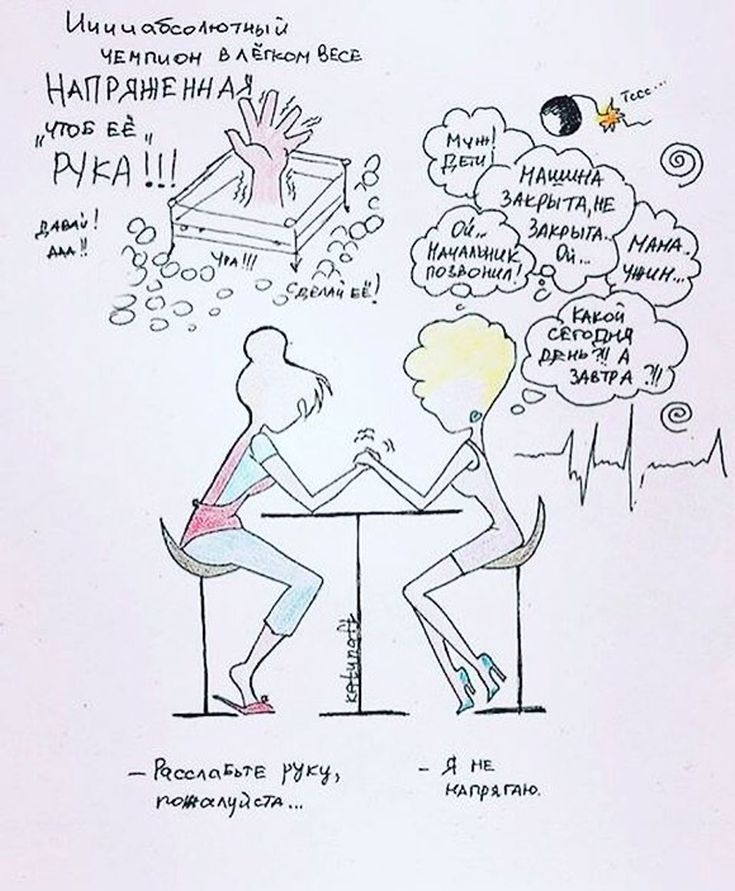 Ииииабсолютный
чемпион в лёгком весе
НАПРЯЖЕННАЯ
„чтоб её"
РУКА!!!
ДАВАЙ!
ААА!!
УРА!!!
СДЕЛАЙ ЕЁ!
Тссс...
МУЖ!
ДЕТИ!
МАШИНА
ЗАКРЫТА, НЕ
ЗАКРЫТА..
ОЙ...
ОЙ...
НАЧАЛЬНИК
ПОЗВОНИЛ!
МАМА..
УЖИН...
КАКОЙ
СЕГОДНЯ
ДЕНЬ?!! А
ЗАВТРА?!!
katunaft
– Расслабьте руку,
пожалуйста...
– Я не
напрягаю.